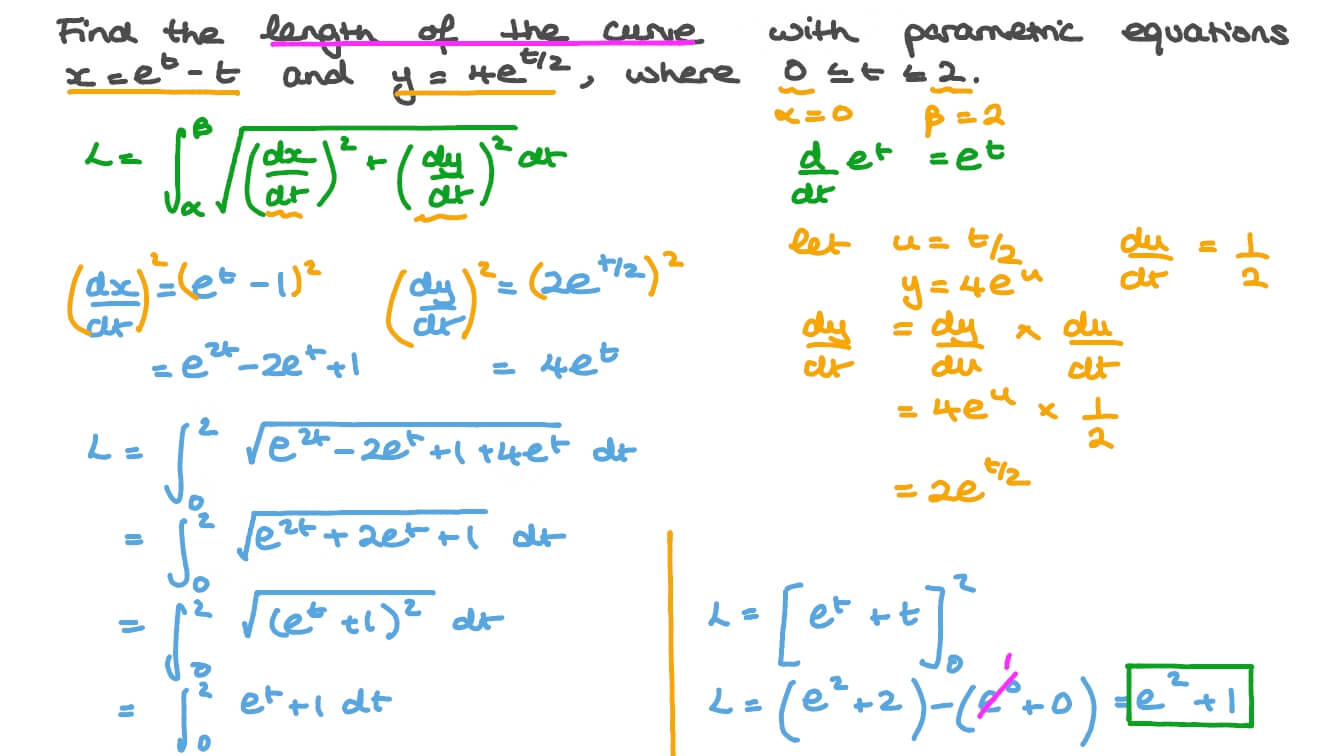 Find the length of the curve with parametric equations
x = e^t - t and y = 4e^{t/2}, where 0 ≤ t ≤ 2.
α = 0 β = 2
L = ∫_α^β √((dx/dt)^2 + (dy/dt)^2) dt
d/dt e^t = e^t
let u = t/2 du/dt = 1/2
y = 4e^u
(dx/dt)^2 = (e^t - 1)^2 (dy/dt)^2 = (2e^{t/2})^2
= e^{2t} - 2e^t + 1 = 4e^t
dy/dt = dy/du × du/dt
= 4e^u × 1/2
= 2e^{t/2}
L = ∫_0^2 √(e^{2t} - 2e^t + 1 + 4e^t) dt
= ∫_0^2 √(e^{2t} + 2e^t + 1) dt
= ∫_0^2 √((e^t + 1)^2) dt
= ∫_0^2 e^t + 1 dt
L = [e^t + t]_0^2
1
L = (e^2 + 2) - (e^0 + 0) = e^2 + 1